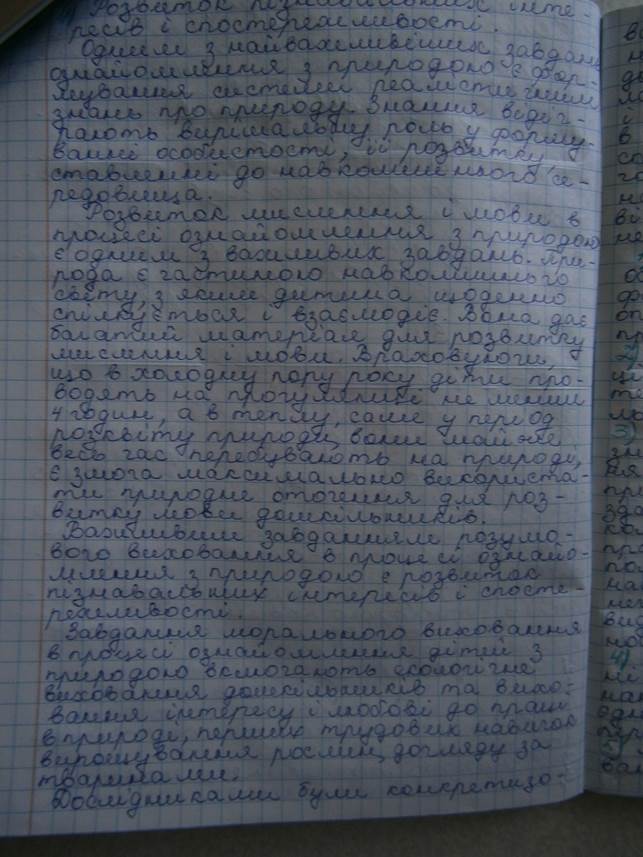 Розвиток пізнавальних інте-
ресів і спостережливості.
Одним з найважливіших завдань
ознайомлення з природою є фор-
мування системи реалістичних
знань про природу. Знання відіг-
рають вирішальну роль у форму-
ванні особистості, її розвитку
ставленні до навколишнього се-
редовища.
Розвиток мислення і мови в
процесі ознайомлення з природою
є одним з важливих завдань. При-
рода є частиною навколишнього
світу, з яким дитина щоденно
спілкується і взаємодіє. Вона дає
багатий матеріал для розвитку
мислення і мови. Враховуючи,
що в холодну пору року діти про-
водять на прогулянці не менше
4 годин, а в теплу, саме у період
розквіту природи, вони майже
весь час перебувають на природі,
є змога максимально використа-
ти природне оточення для роз-
витку мови дошкільників.
Важливим завданням розумо-
вого виховання в процесі ознайо-
млення з природою є розвиток
пізнавальних інтересів і спосте-
режливості.
Завдання морального виховання
в процесі ознайомлення дітей з
природою вкмючають екологічне
виховання дошкільників та вихо-
вання інтересу і любові до праці
в природі, перших трудових навичок
вирощування рослин, догляду за
тваринами.
Дослідниками були конкретизо-